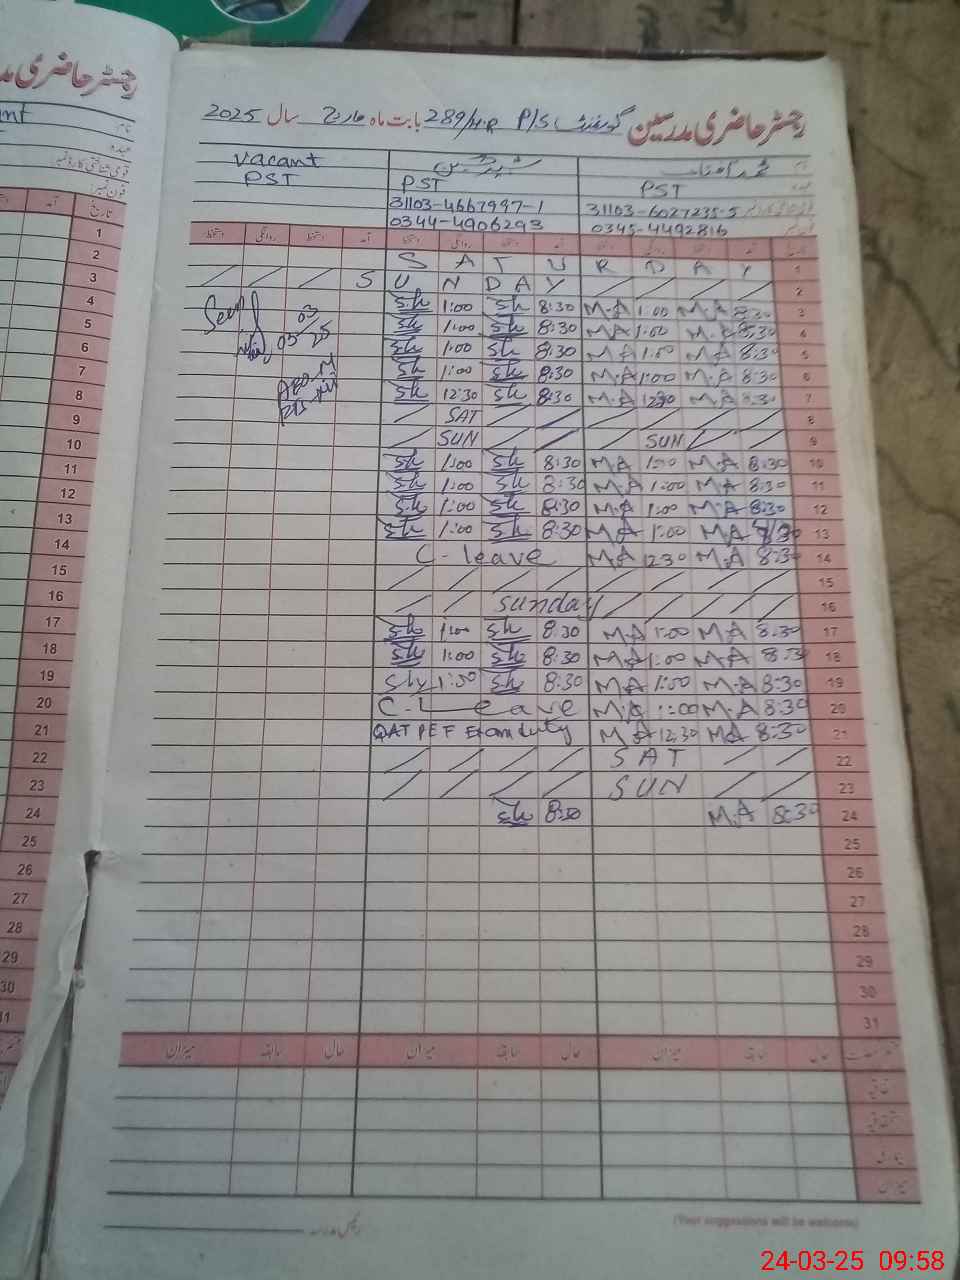 رجسٹر حاضری مدرسین گورنمنٹ P/S 289/HR بابت ماہ مارچ سال 2025
Vacant
PST PST PST
31103-4667997-1 31103-6027235-5
0344-4906293 0345-4492816
S A T U R D A Y 1
S U N D A Y 2
Sh 1:00 Sh 8:30 M.A 1:00 M.A 8:30 3
Sh 1:00 Sh 8:30 M.A 1:00 M.A 8:30 4
Sh 1:00 Sh 8:30 M.A 1:00 M.A 8:30 5
Sh 1:00 Sh 8:30 M.A 1:00 M.A 8:30 6
Sh 12:30 Sh 8:30 M.A 12:30 M.A 8:30 7
SAT 8
SUN SUN 9
Sh 1:00 Sh 8:30 M.A 1:00 M.A 8:30 10
Sh 1:00 Sh 8:30 M.A 1:00 M.A 8:30 11
Sh 1:00 Sh 8:30 M.A 1:00 M.A 8:30 12
Sh 1:00 Sh 8:30 M.A 1:00 M.A 8:30 13
C-leave M.A 12:30 M.A 8:30 14
15
Sunday 16
Sh 1:00 Sh 8:30 M.A 1:00 M.A 8:30 17
Sh 1:00 Sh 8:30 M.A 1:00 M.A 8:30 18
Sh 1:30 Sh 8:30 M.A 1:00 M.A 8:30 19
C-Leave M.A 1:00 M.A 8:30 20
QAT PEF Exam duty M.A 12:30 M.A 8:30 21
SAT 22
SUN 23
Sh 8:30 M.A 8:30 24
25
26
27
28
29
30
31
میزان سابقہ حال میزان سابقہ حال میزان سابقہ حال
(Your suggestions will be welcome)
رجسٹر حاضری
نام
عہدہ
قومی شناختی کارڈ نمبر
فون نمبر
تاریخ
1
2
3
4
5
6
7
8
9
10
11
12
13
14
15
16
17
18
19
20
21
22
23
24
25
26
27
28
29
30
31
24-03-25 09:58